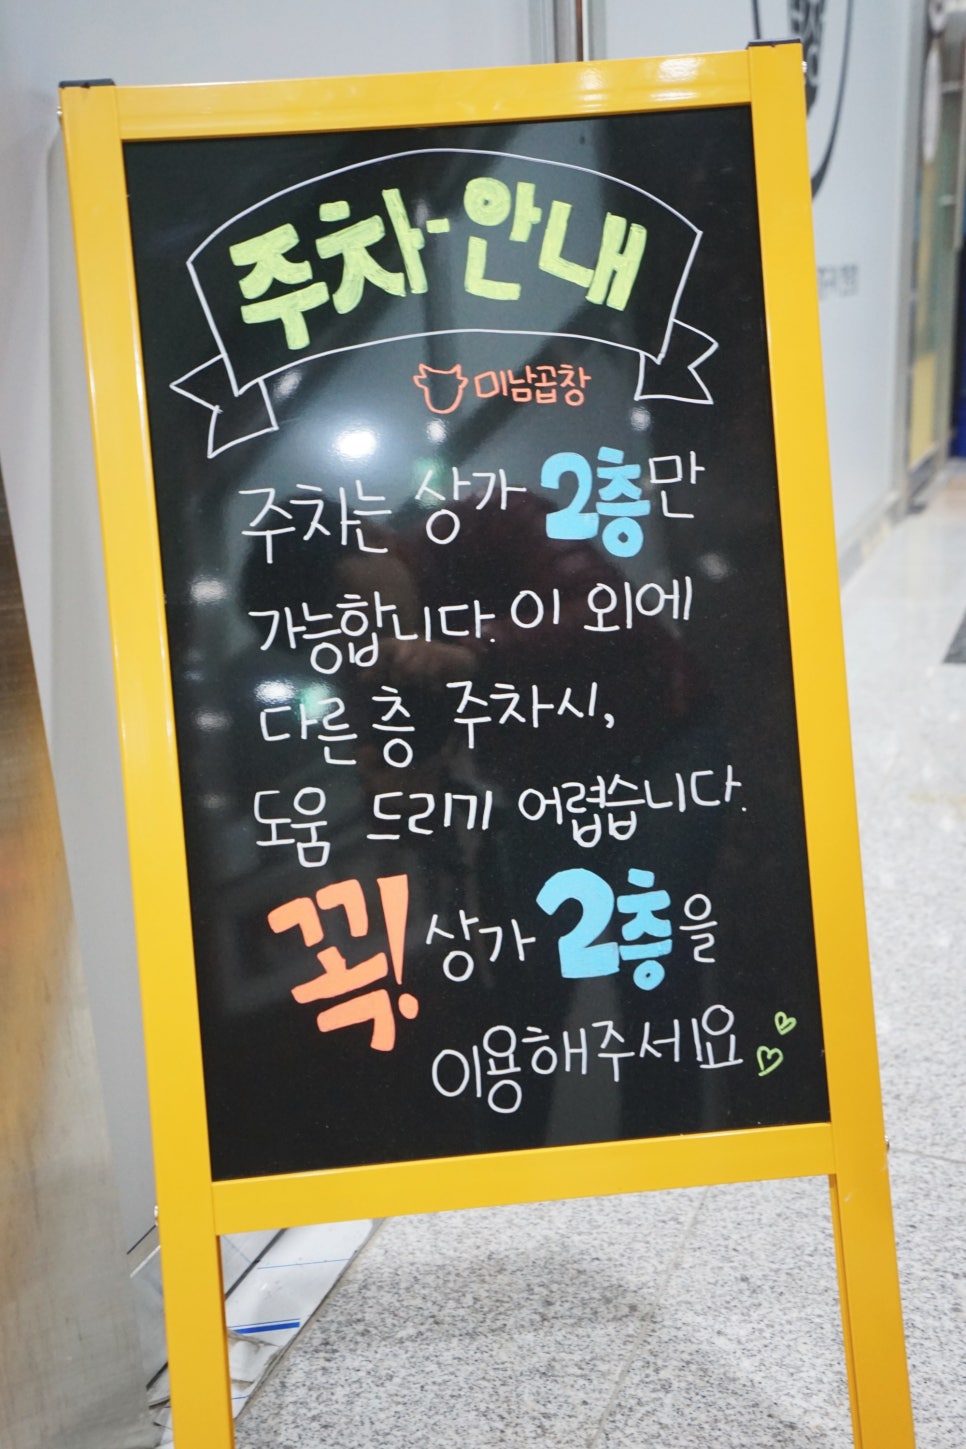 주차 안내
미남곱창
주차는 상가 2층만
가능합니다. 이 외에
다른 층 주차시,
도움 드리기 어렵습니다.
꼭! 상가 2층을
이용해주세요